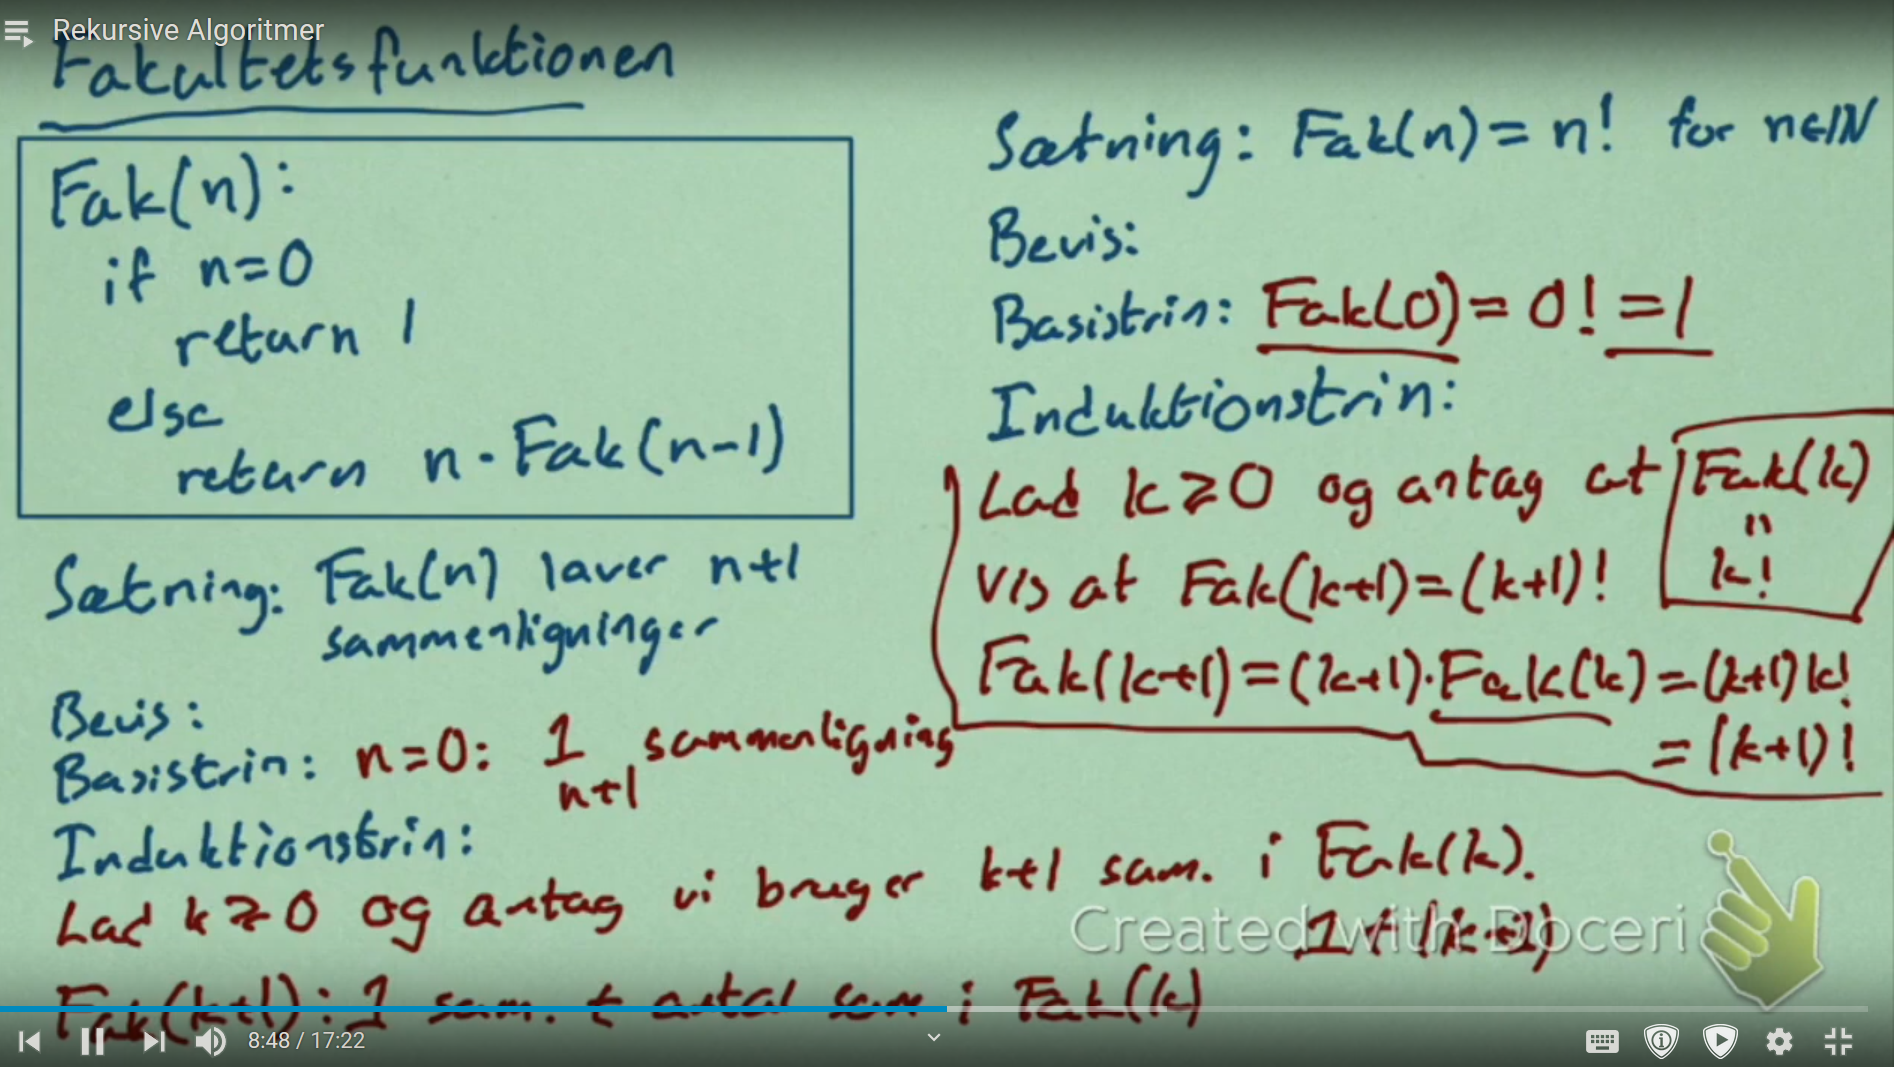 Rekursive Algoritmer
Fakultetsfunktionen
Fak(n):
if n=0
return 1
else
return n · Fak(n-1)
Sætning: Fak(n) laver n+1
sammenligninger
Bevis:
Basistrin: n=0: 1 sammenligning
n+1
Induktionstrin:
Lad k≥0 og antag vi bruger k+1 sam. i Fak(k).
Fak(k+1): 1 sam. + antal sam i Fak(k)
1+(k+1)
Sætning: Fak(n)=n! for n∈ℕ
Bevis:
Basistrin: Fak(0)=0!=1
Induktionstrin:
Lad k≥0 og antag at Fak(k)
"
k!
Vis at Fak(k+1)=(k+1)!
Fak(k+1)=(k+1)·Fak(k)=(k+1)k!
=(k+1)!
Created with Doceri
8:48 / 17:22